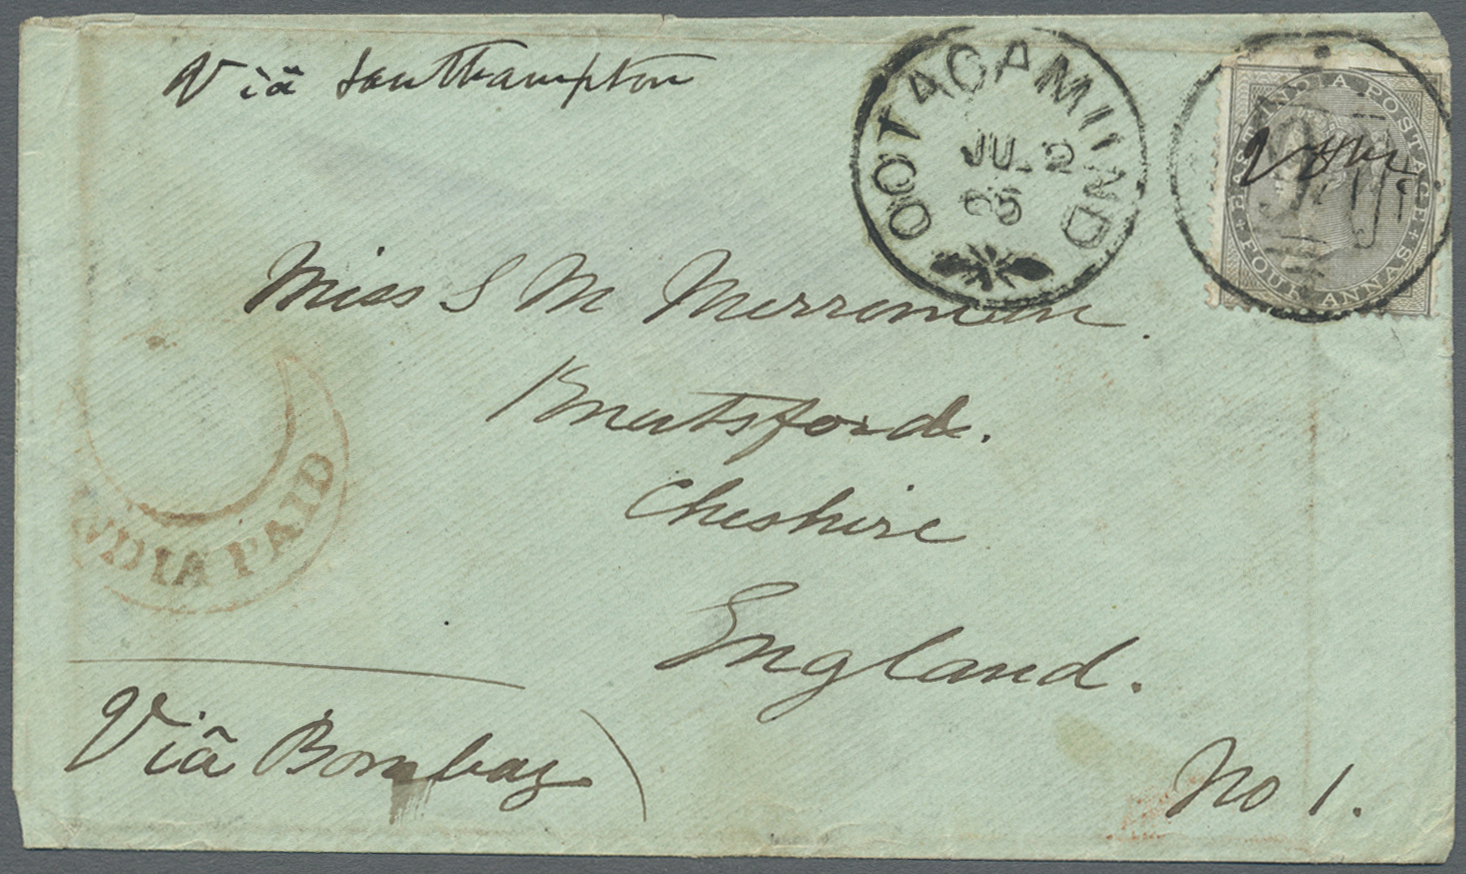 Viā Southampton
OOTACAMUND
JUL 2
65
EAST INDIA POSTAGE
FOUR ANNAS
Miss S M Merriman.
Knutsford.
Cheshire
England.
INDIA PAID
Viā Bombay
No 1.